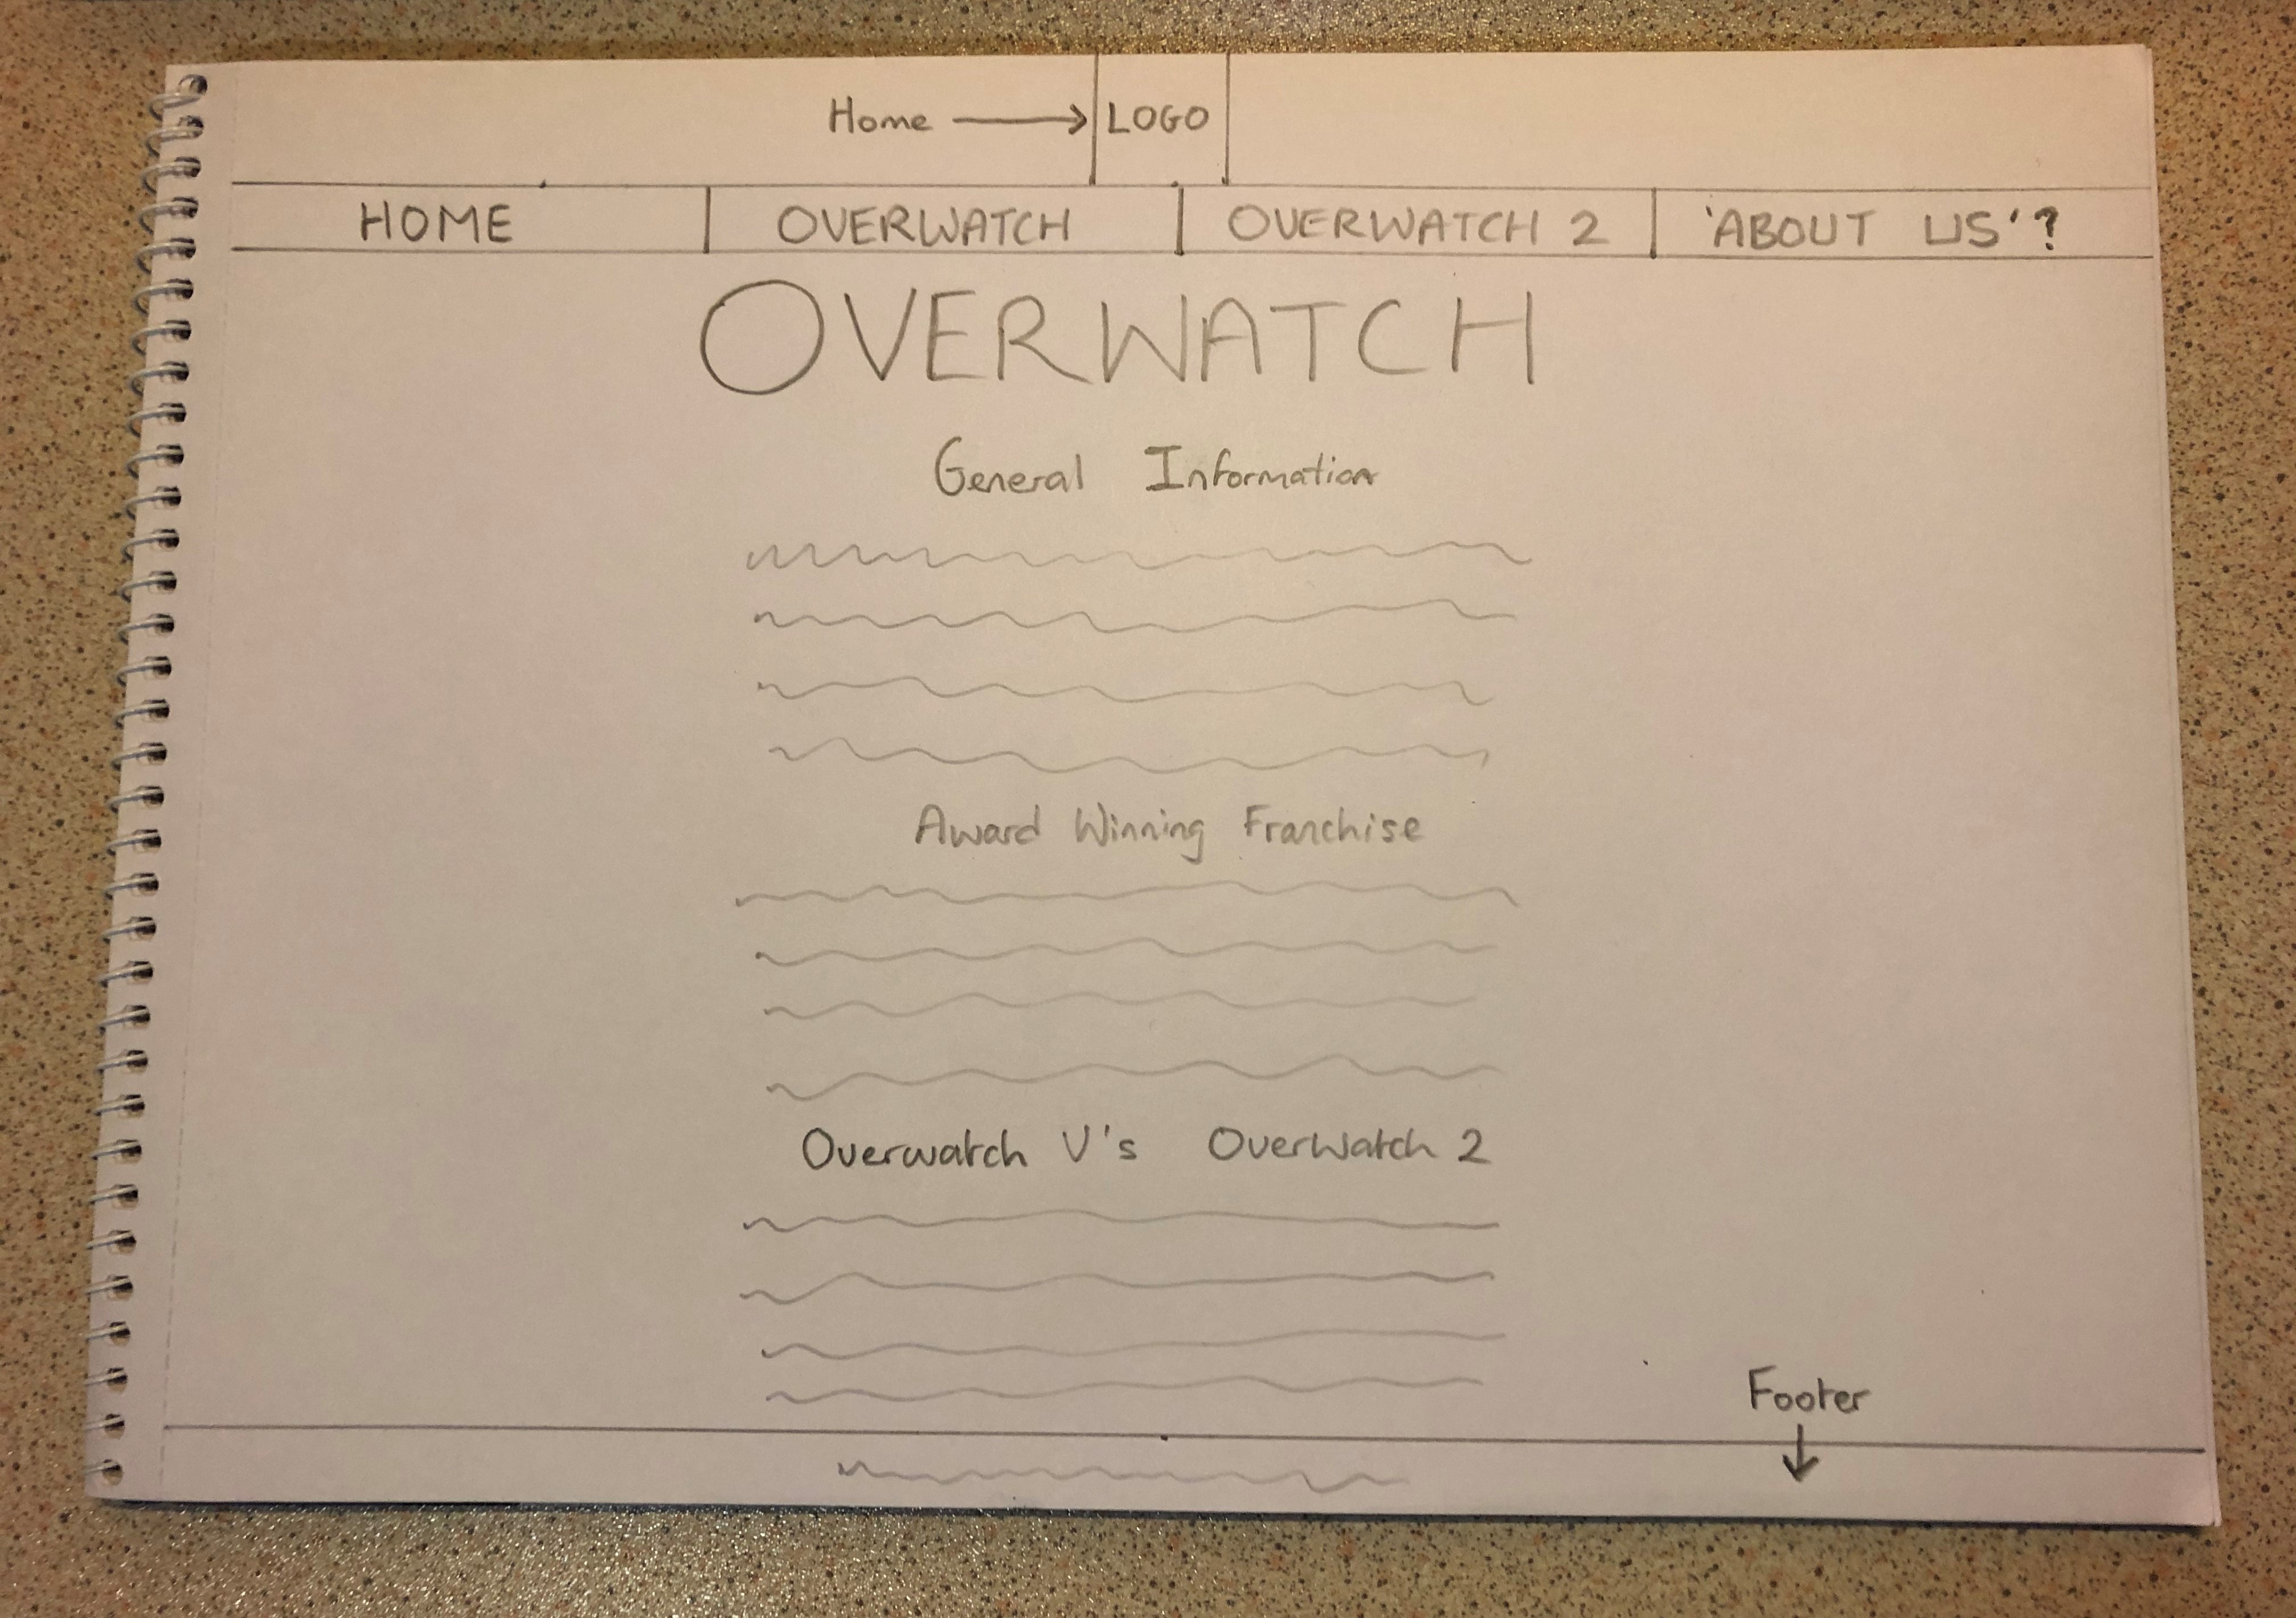 Home LOGO
HOME OVERWATCH OVERWATCH 2 'ABOUT US'?
OVERWATCH
General Information
Award Winning Franchise
Overwatch V's Overwatch 2
Footer